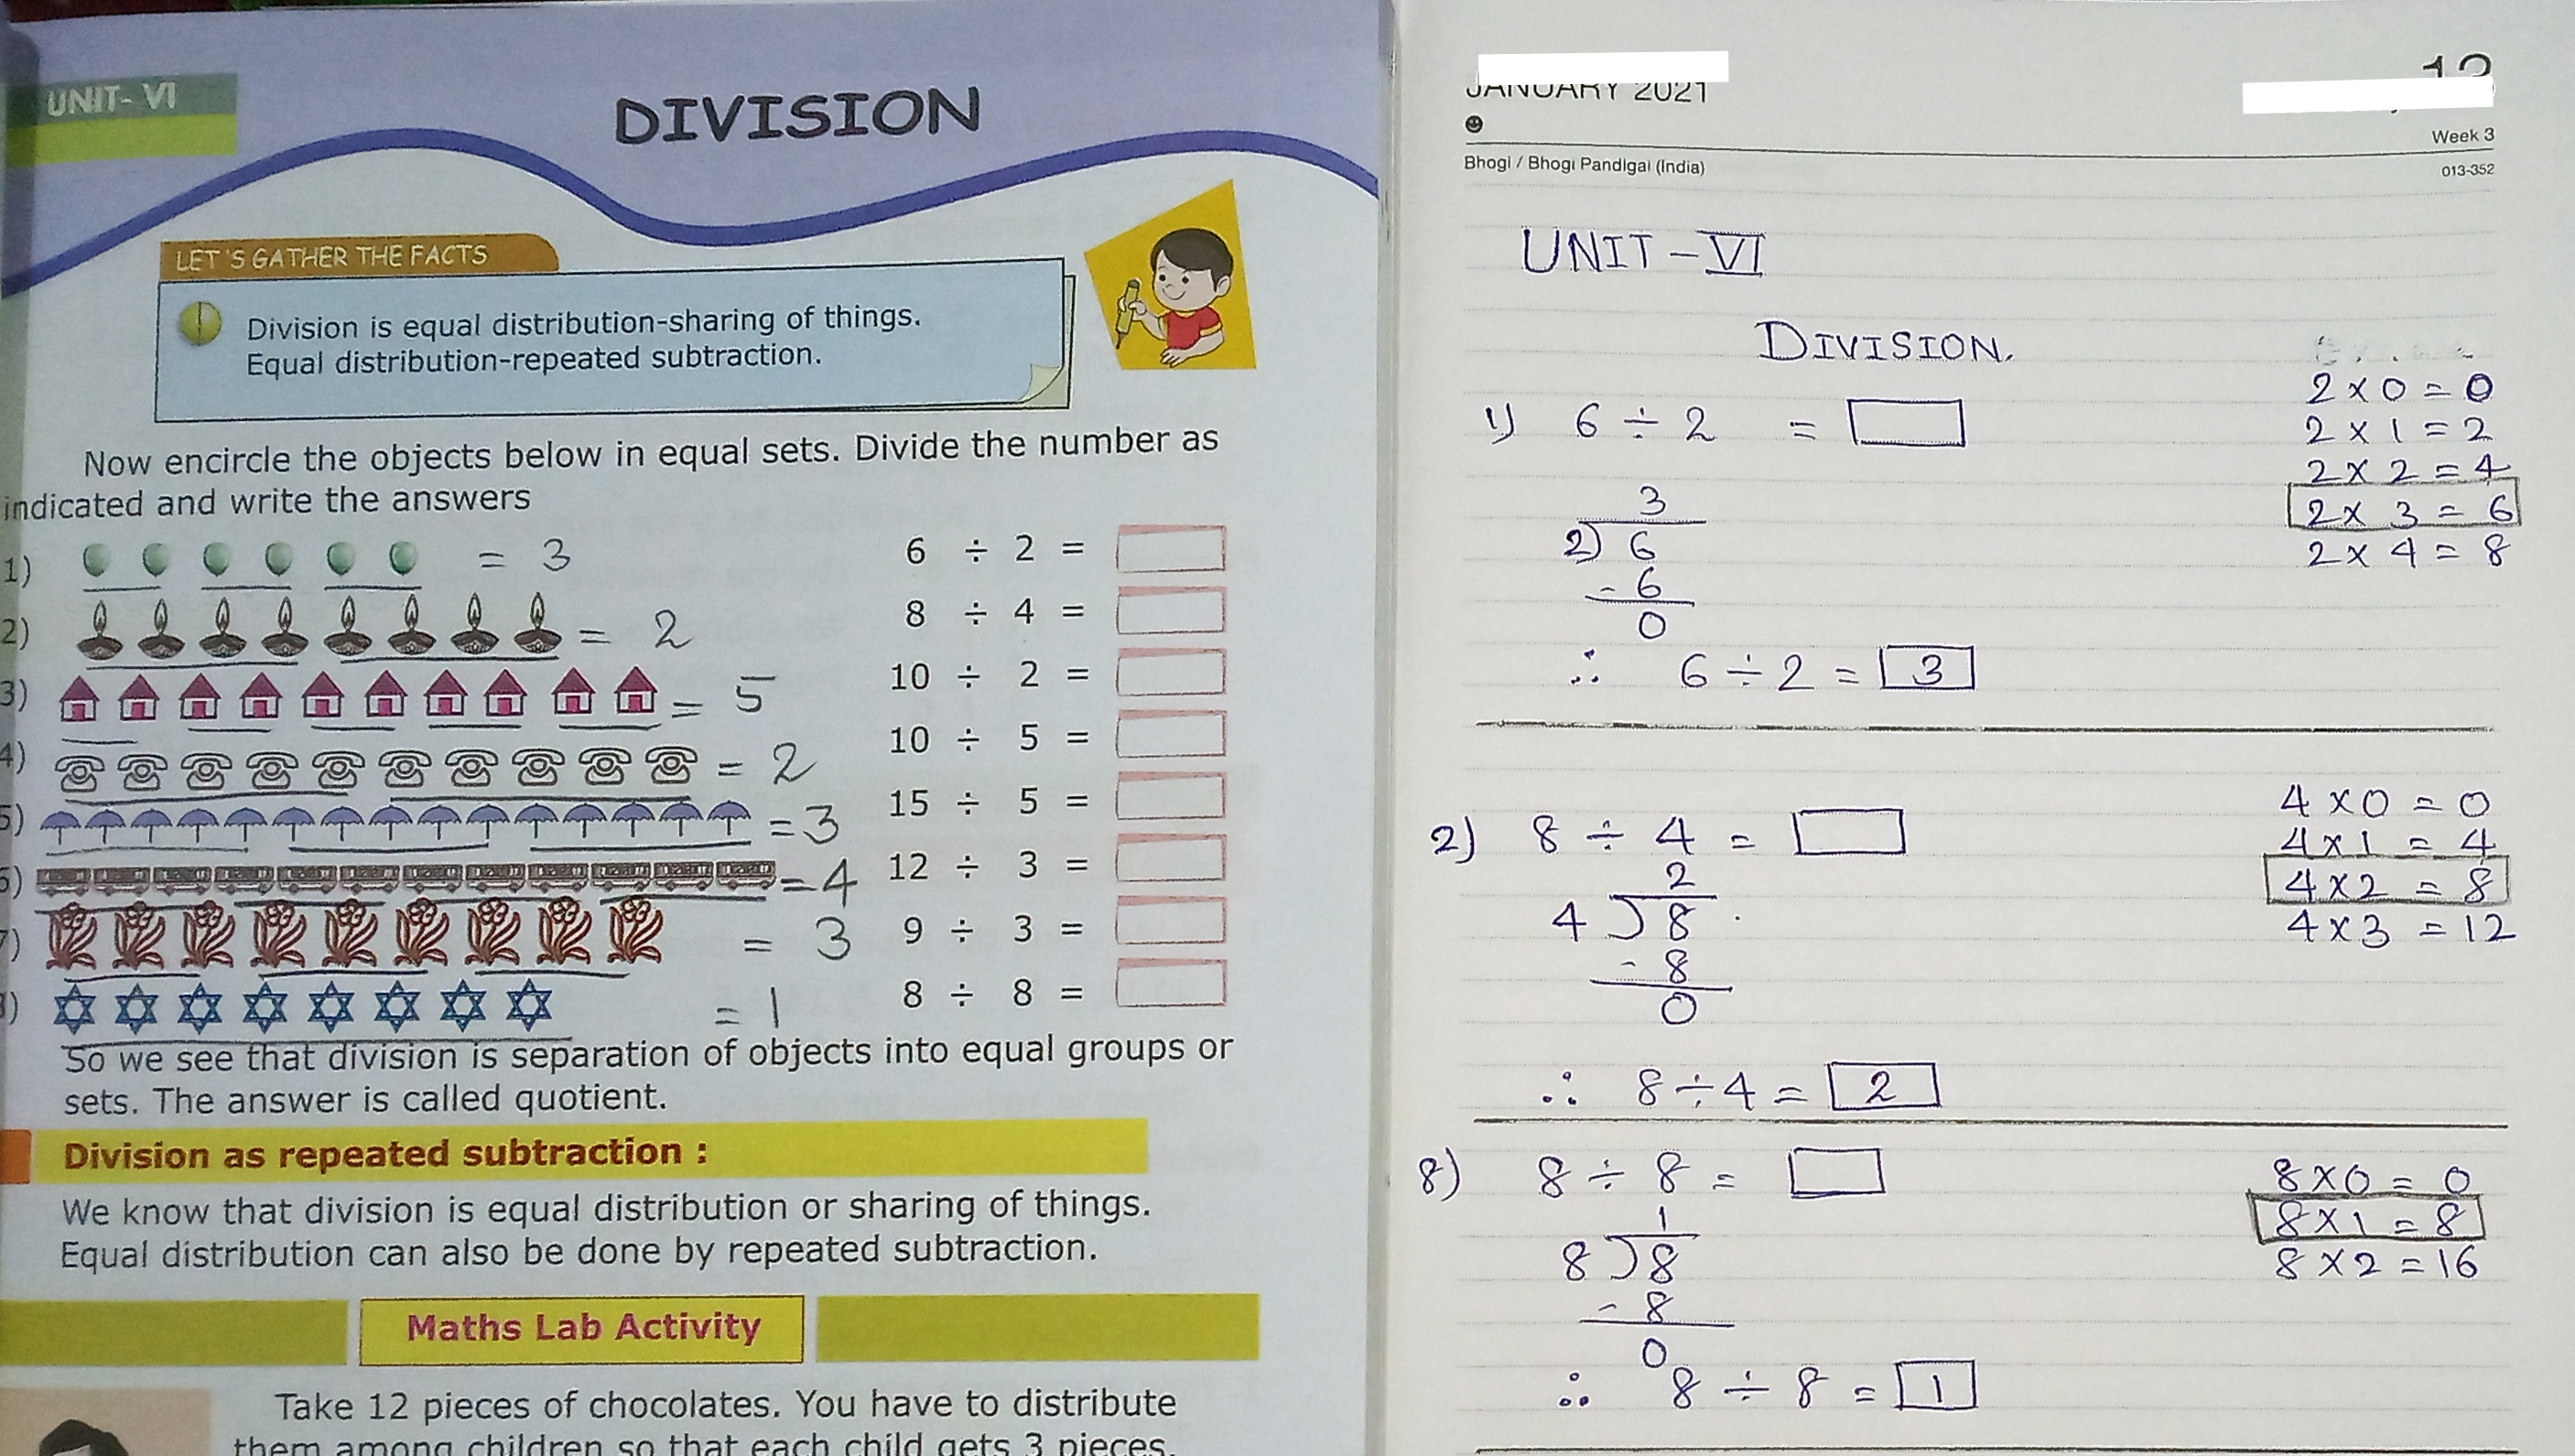 UNIT- VI
DIVISION
LET'S GATHER THE FACTS
Division is equal distribution-sharing of things.
Equal distribution-repeated subtraction.
Now encircle the objects below in equal sets. Divide the number as
indicated and write the answers
1) = 3 6 ÷ 2 =
2) = 2 8 ÷ 4 =
3) = 5 10 ÷ 2 =
4) = 2 10 ÷ 5 =
5) = 3 15 ÷ 5 =
6) = 4 12 ÷ 3 =
7) = 3 9 ÷ 3 =
) = 1 8 ÷ 8 =
So we see that division is separation of objects into equal groups or
sets. The answer is called quotient.
Division as repeated subtraction :
We know that division is equal distribution or sharing of things.
Equal distribution can also be done by repeated subtraction.
Maths Lab Activity
Take 12 pieces of chocolates. You have to distribute
them among children so that each child gets 3 pieces.
JANUARY 2021
Week 3
Bhogi / Bhogi Pandigai (India)
013-352
UNIT - VI
DIVISION.
1) 6 ÷ 2 =
3
2) 6
- 6
0
∴ 6 ÷ 2 = 3
2 x 0 = 0
2 x 1 = 2
2 x 2 = 4
2 x 3 = 6
2 x 4 = 8
2) 8 ÷ 4 =
2
4) 8
- 8
0
∴ 8 ÷ 4 = 2
4 x 0 = 0
4 x 1 = 4
4 x 2 = 8
4 x 3 = 12
8) 8 ÷ 8 =
1
8) 8
- 8
0
∴ 8 ÷ 8 = 1
8 x 0 = 0
8 x 1 = 8
8 x 2 = 16